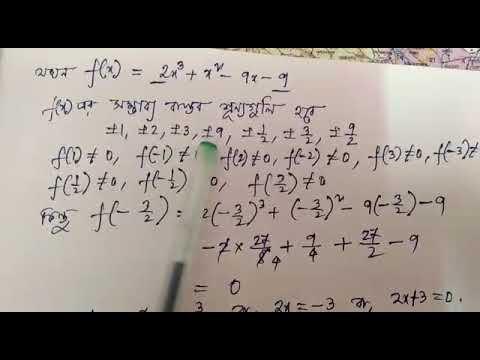 যখন f(x) = 2x³ + x² - 9x - 9
f(x) এর সম্ভাব্য বাস্তব শূন্যগুলি হবে
±1, ±2, ±3, ±9, ± 1/2, ± 3/2, ± 9/2
f(1) ≠ 0, f(-1) ≠ 0, f(2) ≠ 0, f(-2) ≠ 0, f(3) ≠ 0, f(-3) ≠
f(1/2) ≠ 0, f(-1/2) 0, f(3/2) ≠ 0
কিন্তু f(- 3/2) = 2(-3/2)³ + (-3/2)² - 9(-3/2) - 9
- 2 × 27/8 4 + 9/4 + 27/2 - 9
= 0
3 বা, 2x = -3 বা, 2x+3 = 0.